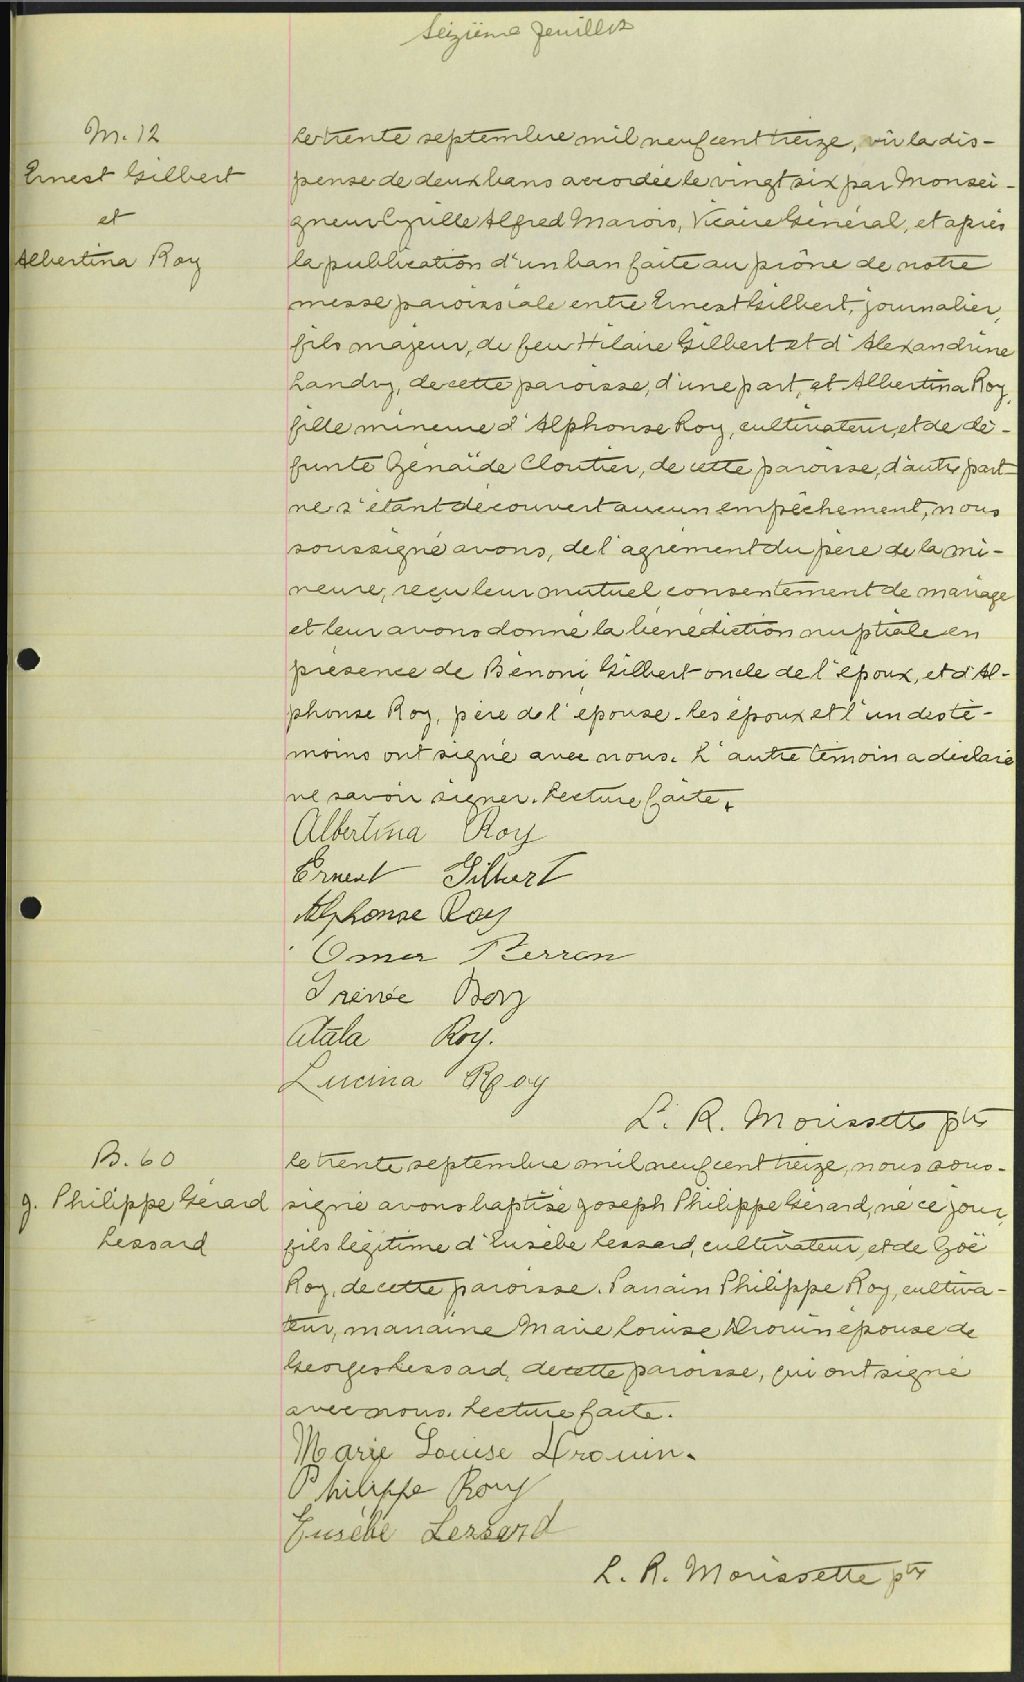 Seizième feuillet
M. 12
Ernest Gilbert
et
Albertina Roy
Le trente septembre mil neuf cent treize, vu la dis-
pense de deux bans accordée le vingt six par Monsei-
gneur Cyrille Alfred Marois, Vicaire Général, et après
la publication d'un ban faite au prône de notre
messe paroissiale entre Ernest Gilbert, journalier,
fils majeur, de feu Hilaire Gilbert et d'Alexandrine
Landry, de cette paroisse, d'une part, et Albertina Roy,
fille mineure d'Alphonse Roy, cultivateur, et de dé-
funte Zénaïde Cloutier, de cette paroisse, d'autre part
ne s'étant découvert aucun empêchement, nous
soussigné avons, de l'agrément du père de la mi-
neure, reçu leur mutuel consentement de mariage
et leur avons donné la bénédiction nuptiale en
présence de Bénoni Gilbert oncle de l'époux, et d'Al-
phonse Roy, père de l'épouse. Les époux et l'un des té-
moins ont signé avec nous. L'autre témoin a déclaré
ne savoir signer. Lecture faite.
Albertina Roy
Ernest Gilbert
Alphonse Roy
Omer Perron
Irénée Roy
Atala Roy.
Lucina Roy
L. R. Morissette ptre
B. 60
J. Philippe Gérard
Lessard
Le trente septembre mil neuf cent treize, nous sous-
signé avons baptisé Joseph Philippe Gérard, né ce jour,
fils légitime d'Eusèbe Lessard, cultivateur, et de Zoë
Roy, de cette paroisse. Parrain Philippe Roy, cultiva-
teur, marraine Marie Louise Drouin épouse de
Georges Lessard, de cette paroisse, qui ont signé
avec nous. Lecture faite.
Marie Louise Drouin.
Philippe Roy
Eusèbe Lessard
L. R. Morissette ptre